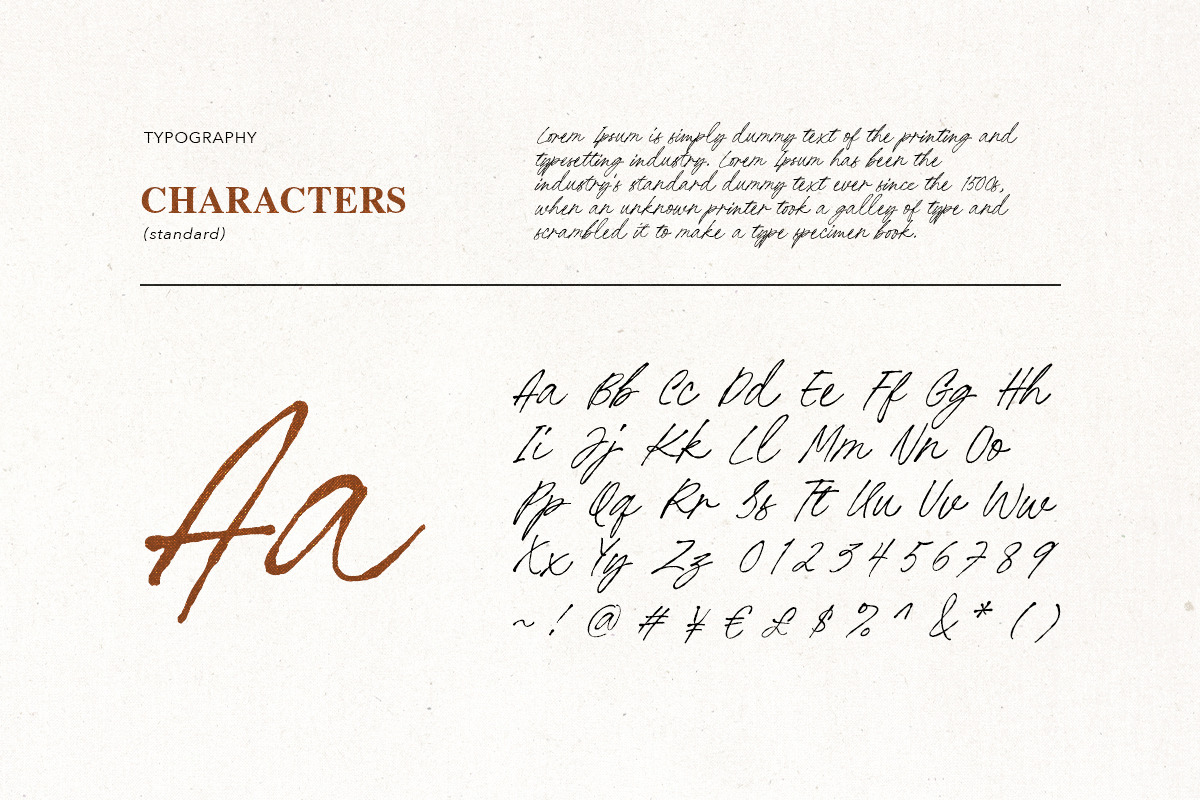 TYPOGRAPHY
CHARACTERS
(standard)
Lorem Ipsum is simply dummy text of the printing and
typesetting industry. Lorem Ipsum has been the
industry's standard dummy text ever since the 1500s,
when an unknown printer took a galley of type and
scrambled it to make a type specimen book.
Aa
Aa Bb Cc Dd Ee Ff Gg Hh
Ii Jj Kk Ll Mm Nn Oo
Pp Qq Rr Ss Tt Uu Vv Ww
Xx Yy Zz 0 1 2 3 4 5 6 7 8 9
~ ! @ # ¥ € £ $ % ^ & * ( )